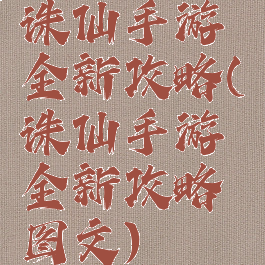 诛仙手游
全新攻略(
诛仙手游
全新攻略
图文)